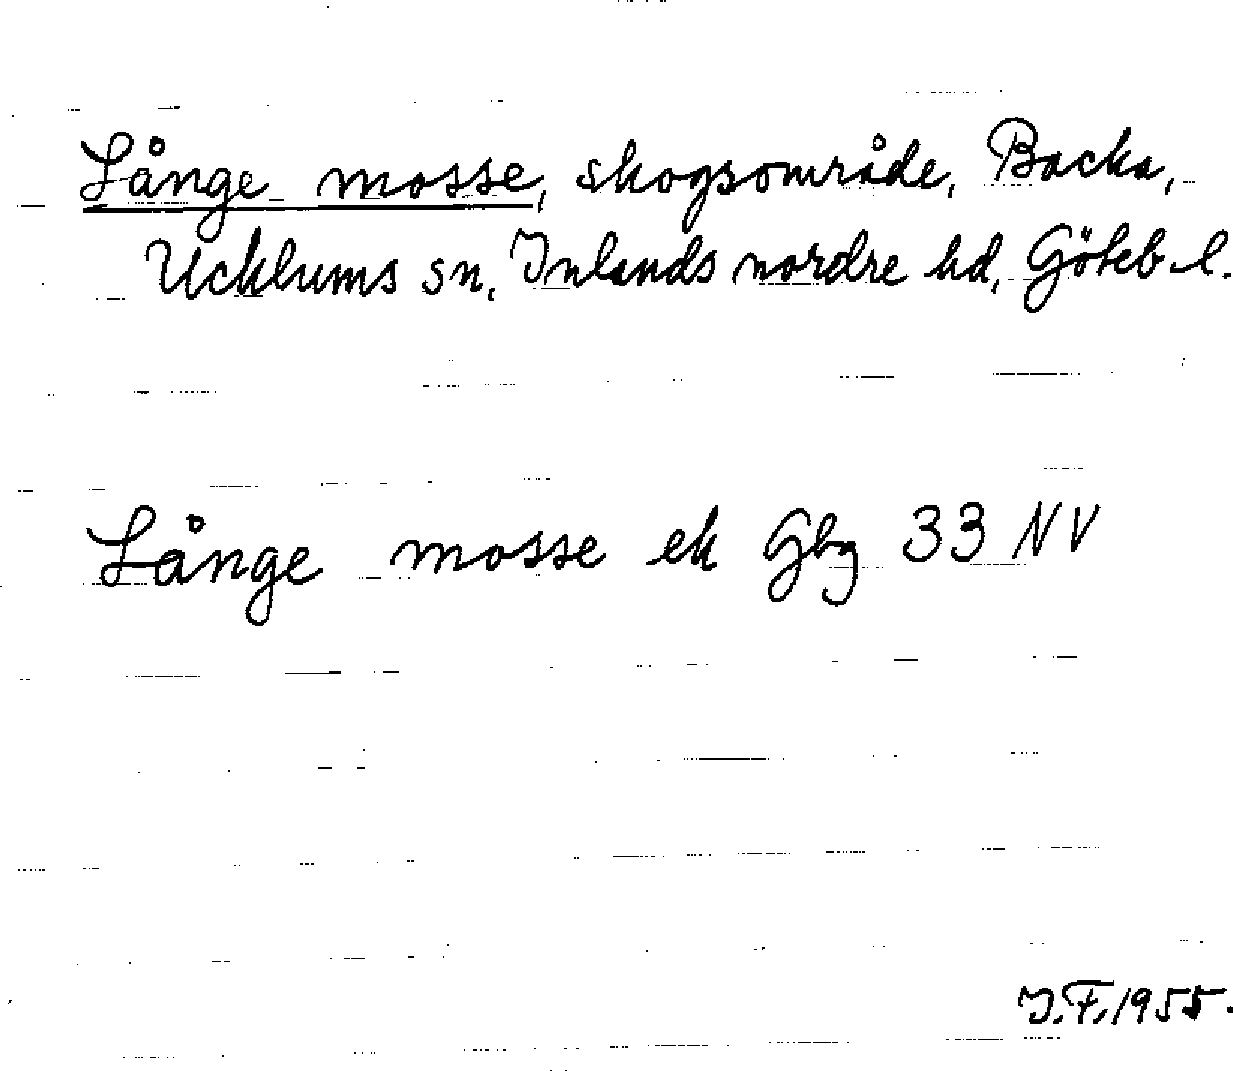 Långe mosse, skogsområde, Backa,
Ucklums sn, Inlands nordre hd, Göteb l.
Långe mosse ek Gbg 33 NV
I.F. 1955.